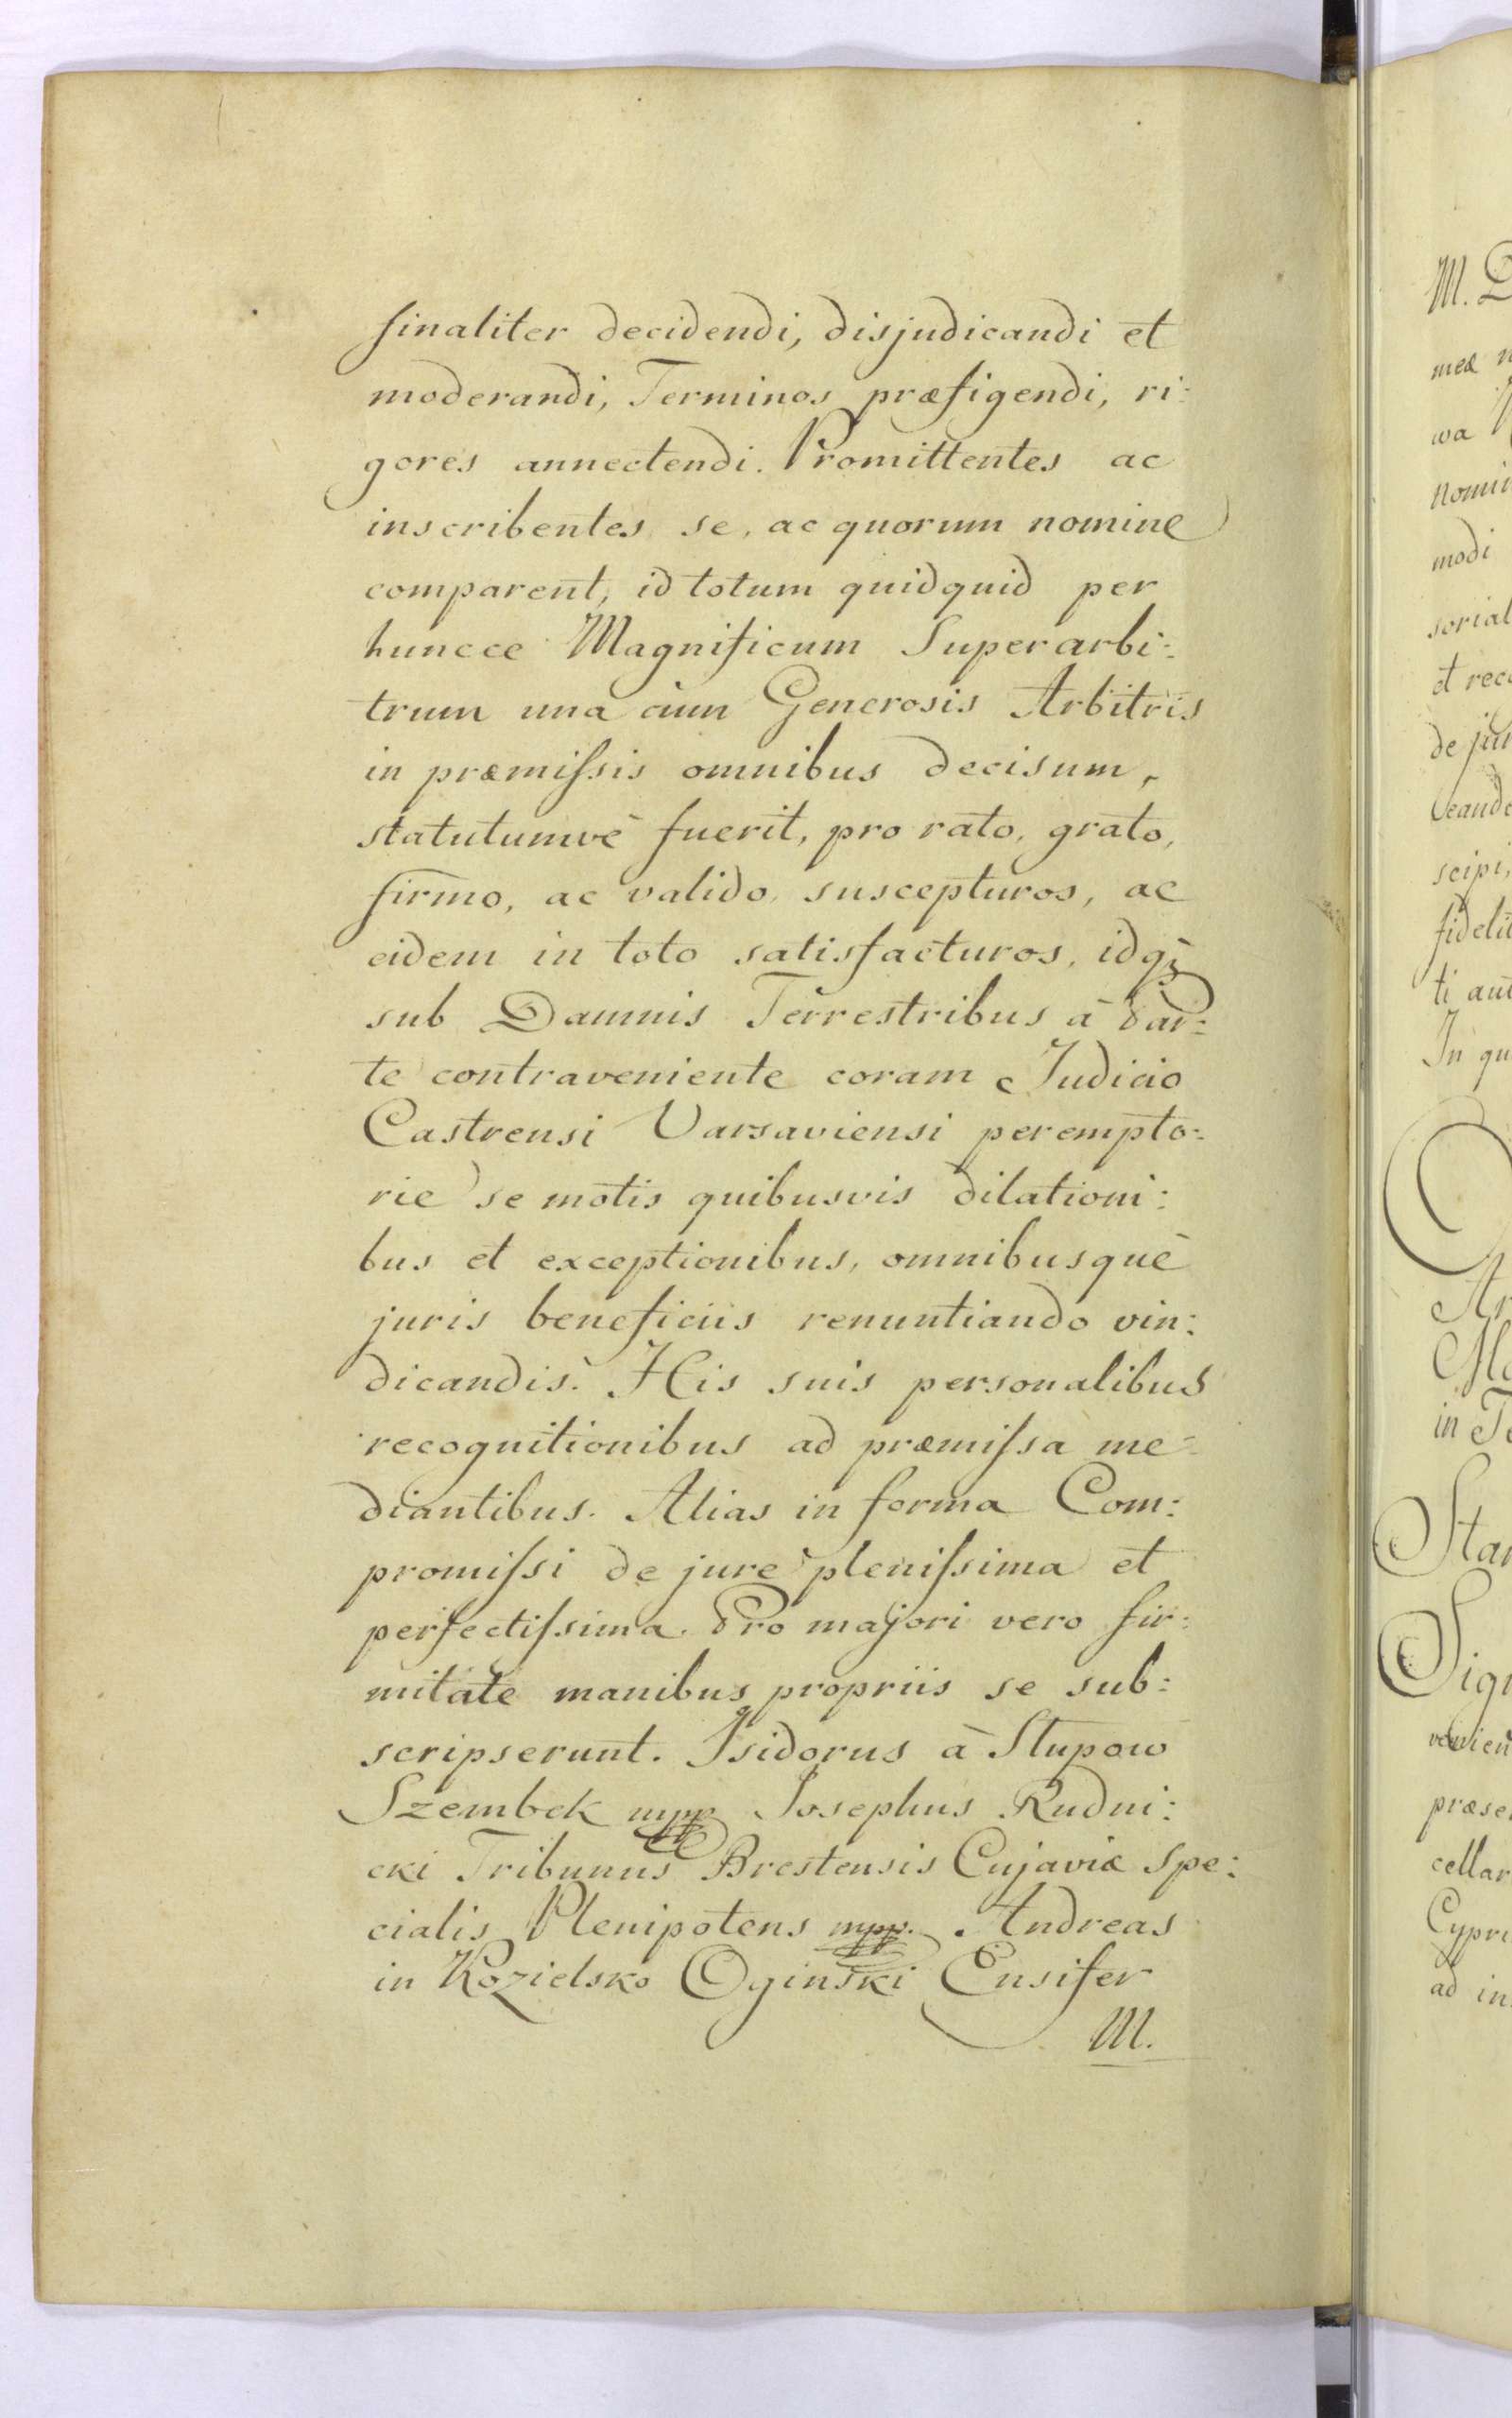 finaliter decidendi, disjudicandi et
moderandi, Terminos præfigendi, ri:
gores annectendi. Promittentes ac
inscribentes se, ac quorum nomine
comparent, id totum quidquid per
huncce Magnificum Superarbi:
trum una cum Generosis Arbitris
in præmiſsis omnibus decisum,
statutumvè fuerit, pro rato, grato,
firmo, ac valido, suscepturos, ac
eidem in toto satisfacturos, idqȝ
sub Damnis Terrestribus à Par:
te contraveniente coram Judicio
Castrensi Varsaviensi perempto:
rie se motis quibusvis dilationi:
bus et exceptionibus, omnibusquè
juris beneficiis renuntiando vin:
dicandis. His suis personalibus
recognitionibus ad præmiſsa me:
diantibus. Alias in forma Com:
promiſsi de jure pleniſsima et
perfectiſsima. Pro majori vero fir:
mitate manibus propriis se sub:
scripserunt. Isidorus à Stupow
Szembek mpp Josephus Rudni:
cki Tribunus Brestensis Cujaviæ Spe:
cialis Plenipotens mpp. Andreas
in Kozielsko Oginski Ensifer
M.
M.
meæ
wa
modi
sorial
et rec
de jur
scipi,
fideli
ti aut
In qu
in Te
Sta
Sig
venien
præse
cellar
Cypri
ad in